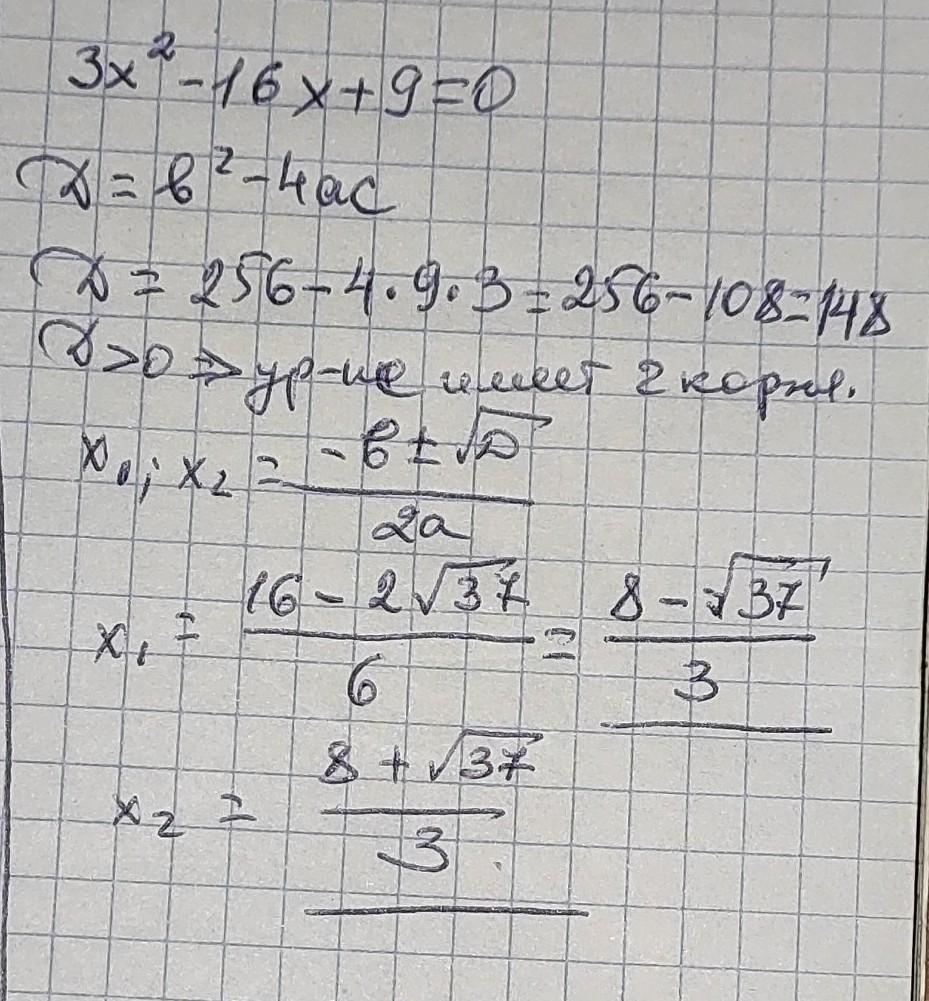 3x² - 16x + 9 = 0
D = b² - 4ac
D = 256 - 4 · 9 · 3 = 256 - 108 = 148
D > 0 ⇒ ур-ие имеет 2 корня.
x₁; x₂ = (-b ± √D) / 2a
x₁ = (16 - 2√37) / 6 = (8 - √37) / 3
x₂ = (8 + √37) / 3